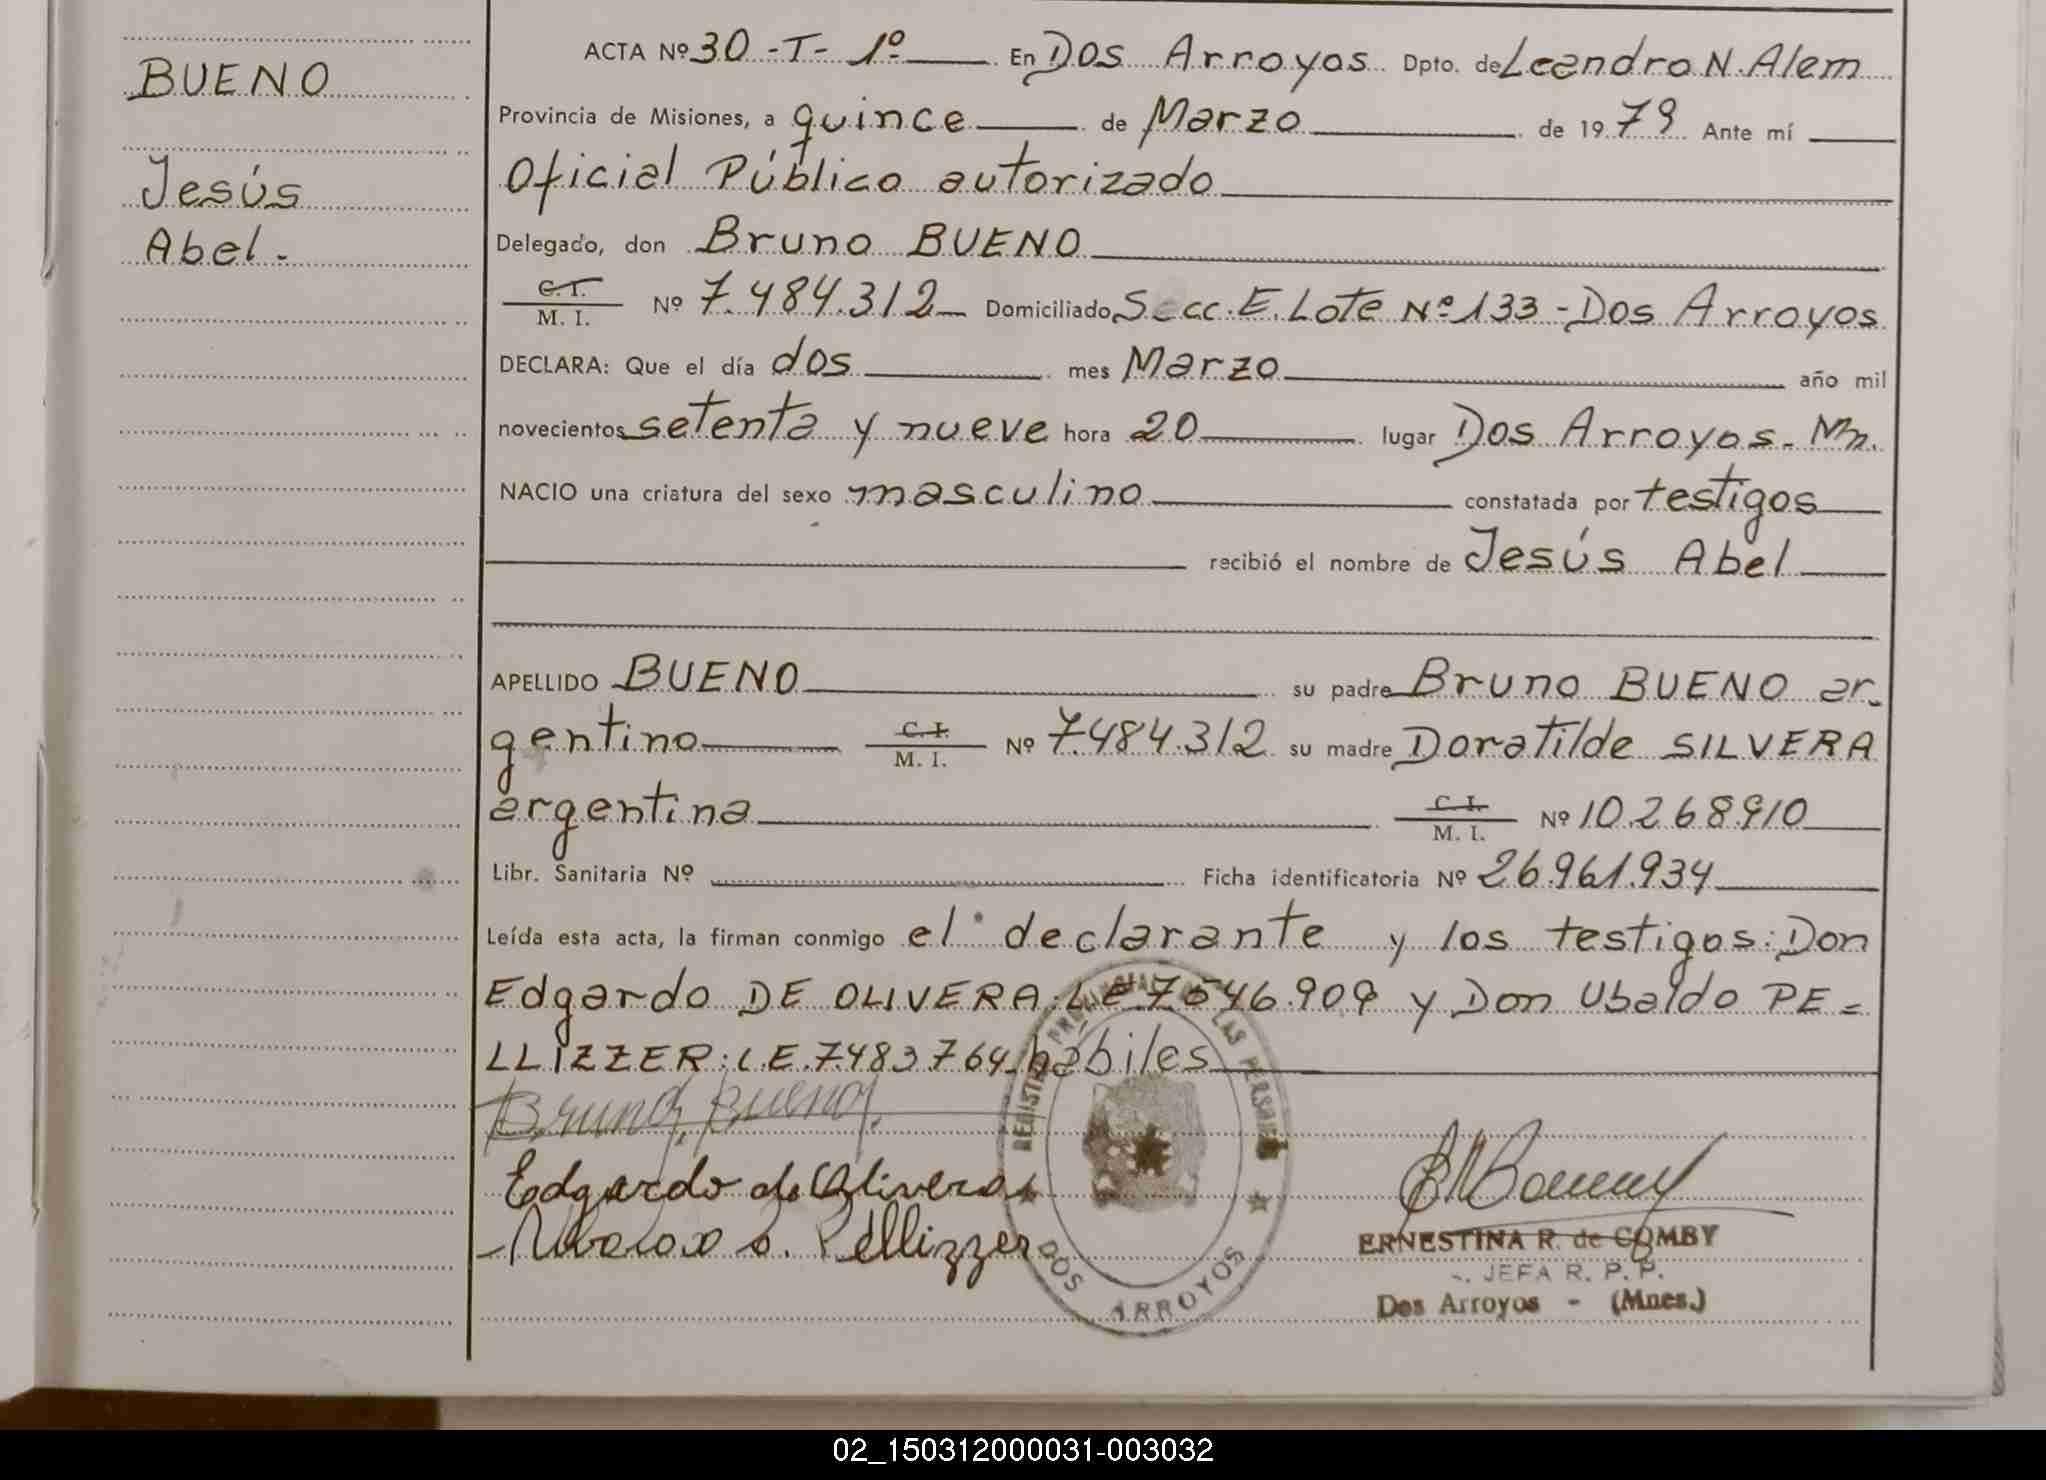 BUENO
Jesús
Abel.-
ACTA Nº 30 -T- 1º En Dos Arroyos Dpto. de Leandro N. Alem
Provincia de Misiones, a quince de Marzo de 1979 Ante mí
Oficial Público autorizado
Delegado, don Bruno BUENO
C. I.
M. I. Nº 7.484.312 Domiciliado Secc. E. Lote Nº 133 - Dos Arroyos
DECLARA: Que el día dos mes Marzo año mil
novecientos setenta y nueve hora 20 lugar Dos Arroyos - Mn.
NACIO una criatura del sexo masculino constatada por testigos
recibió el nombre de Jesús Abel
APELLIDO BUENO su padre Bruno BUENO ar-
gentino C. I. M. I. Nº 7.484.312 su madre Doratilde SILVERA
argentina C. I. M. I. Nº 10.268.910
Libr. Sanitaria Nº Ficha identificatoria Nº 26.961.934
Leída esta acta, la firman conmigo el declarante y los testigos: Don
Edgardo DE OLIVERA: LE 7546.909 y Don Ubaldo PE=
LLIZZER: L.E. 7.483.764 hábiles
Bruno Bueno
Edgardo de Olivera
Pellizzer
REGISTRO PROVINCIAL DE LAS PERSONAS
DOS ARROYOS
ERNESTINA R. de COMBY
JEFA R. P. P.
Dos Arroyos - (Mnes.)
02_150312000031-003032